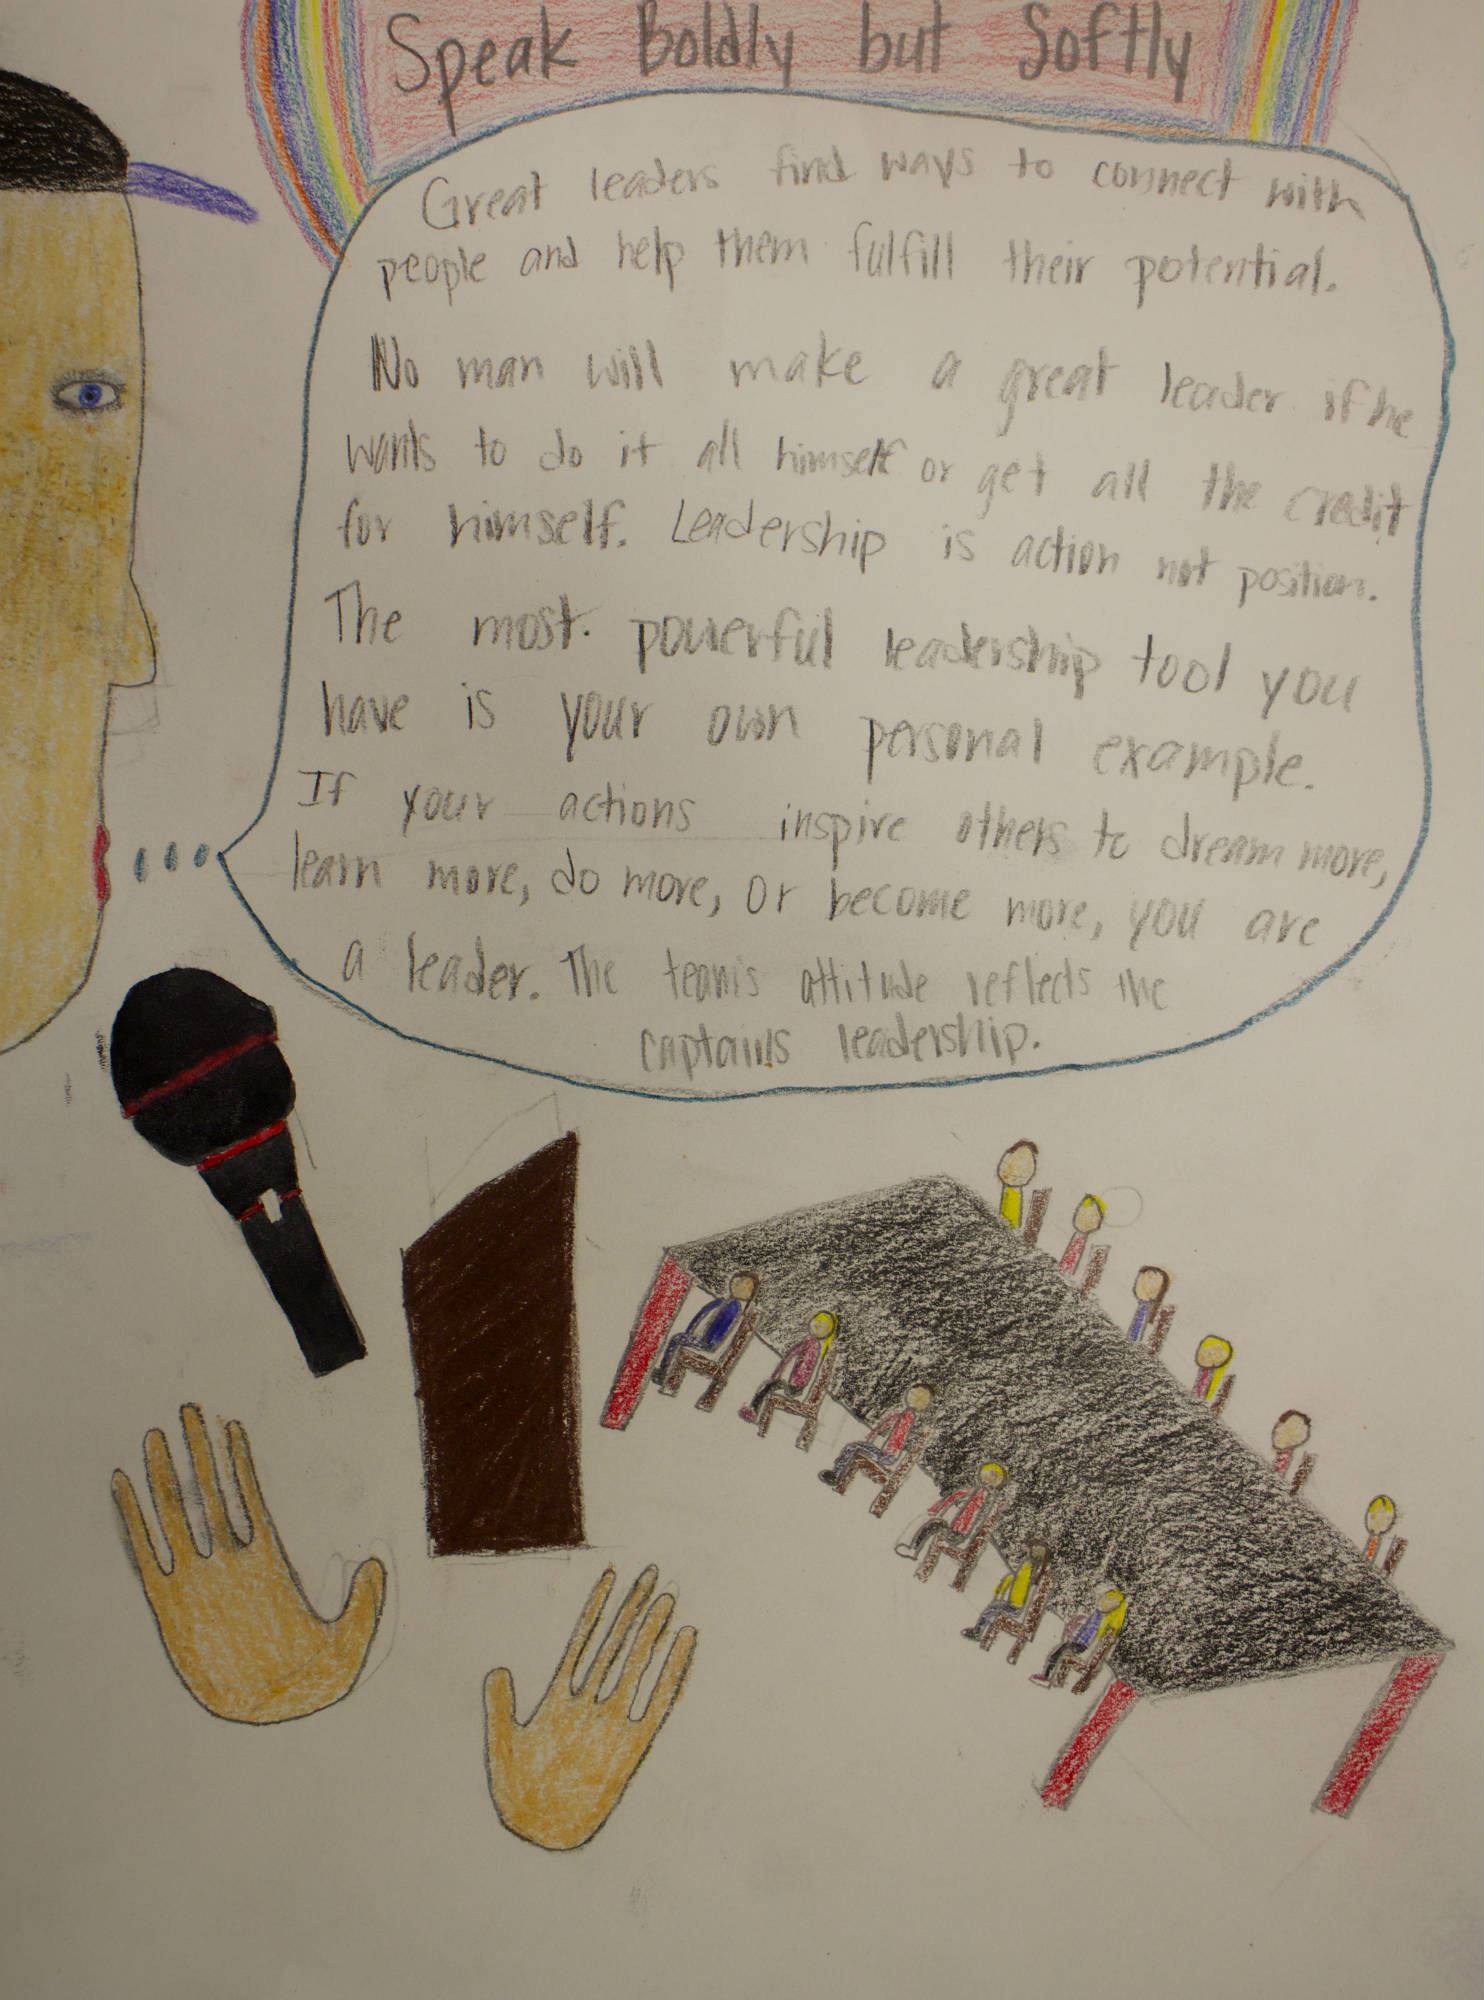 Speak Boldly but Softly
Great leaders find ways to connect with
people and help them fulfill their potential.
No man will make a great leader if he
wants to do it all himself or get all the credit
for himself. Leadership is action not position.
The most powerful leadership tool you
have is your own personal example.
If your actions inspire others to dream more,
learn more, do more, or become more, you are
a leader. The team's attitude reflects the
captains leadership.